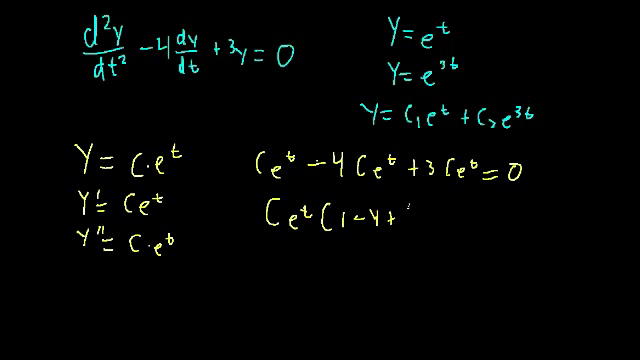 d²y/dt² - 4 dy/dt + 3y = 0
y = e^t
y = e^3t
y = c₁e^t + c₂e^3t
y = C·e^t
y' = Ce^t
y'' = C·e^t
Ce^t - 4Ce^t + 3Ce^t = 0
Ce^t(1-4+